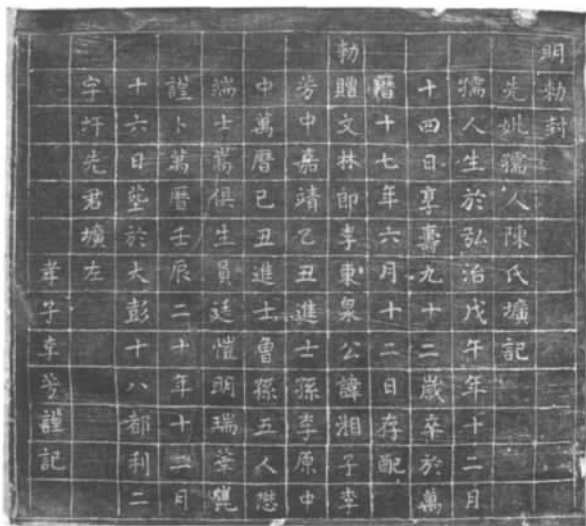 明勅封
先妣孺人陳氏壙記
孺人生於弘治戊午年十二月
十四日享壽九十二歲卒於萬
曆十七年六月十二日存配
勅贈文林郎李東泉公諱湘子李
芳中嘉靖乙丑進士孫李原中
中萬曆己丑進士曾孫五人懋
端士嵩俱生員廷愷明瑞葉
謹卜萬曆壬辰二十年十二月
十六日塟於大彭十八都利二
字圩先君壙左
孝子李芳謹記